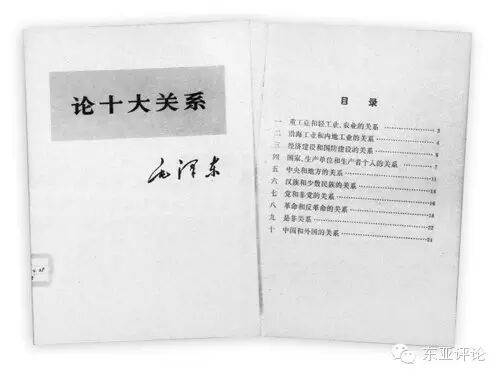 论十大关系
毛泽东
目录
一 重工业和轻工业、农业的关系 3
二 沿海工业和内地工业的关系 4
三 经济建设和国防建设的关系 6
四 国家、生产单位和生产者个人的关系 7
五 中央和地方的关系
六 汉族和少数民族的关系
七 党和非党的关系 16
八 革命和反革命的关系 18
九 是非关系 22
十 中国和外国的关系 24
东亚评论